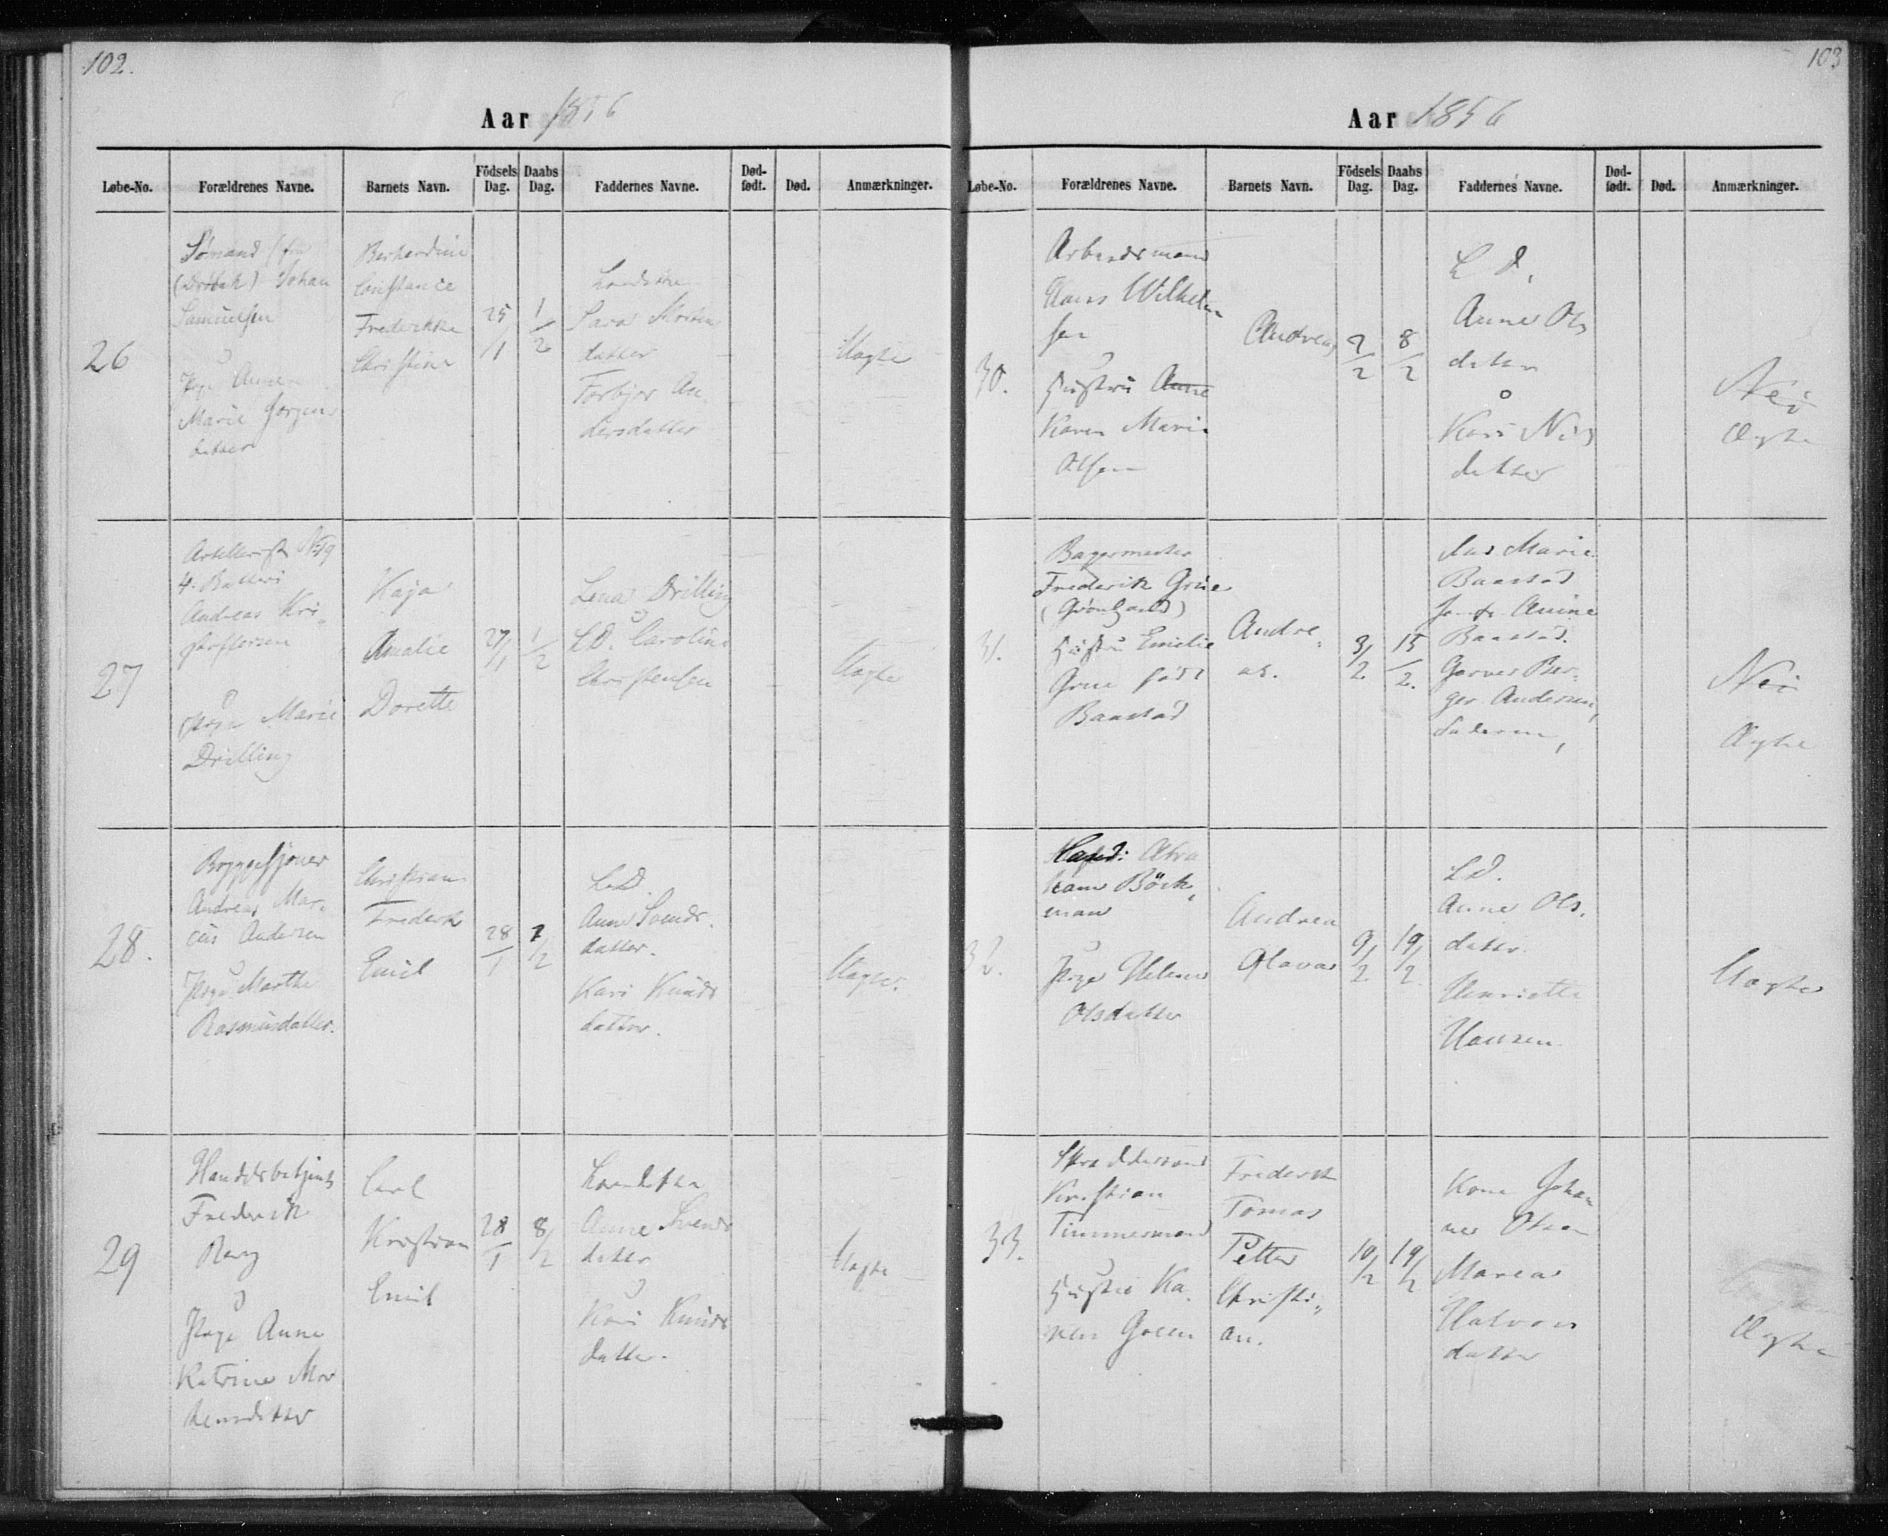 102.
Aar 1856
Løbe-No. Forældrenes Navne. Barnets Navn. Födsels Dag. Daabs Dag. Faddernes Navne. Død-födt. Død. Anmærkninger.
26
Sømand (fra
(Drøbak) Johan
Samuelsen
Pige Anne
Marie Jørgens
datter
Berhardine
Constance
Frederikke
Christine
25/1
1/2
Landsthr
Sara Morten
datter
Torbjør An
dersdatter
Uægte
27
Artillerist No 19
4. Batteri
Andreas Kri
stoffersen
Pige Marie
Drilling
Kaja
Amalie
Dorette
27/1
1/2
Lena Drilling
L.D. Caroline
Christensen
Uægte
28.
Bryggesjouer
Andreas Mar
cus Andersen
Pige Marthe
Rasmusdatter.
Christian
Frederk
Emil
28/1
7/2
L.D.
Anne Svends
datter.
Kari Knuds
datter.
Uægte.
29
Handelsbetjent
Frederik
Berg
Pige Anne
Katrine Mor
tensdatter
Carl
Kristian
Emil
28/1
8/2
Anne Svends
datter
Kari Knuds
datter.
Uægte
103
Aar 1856
Løbe-No. Forældrenes Navne. Barnets Navn. Födsels Dag. Daabs Dag. Faddernes Navne. Død-födt. Død. Anmærkninger.
30.
Arbeidsmand
Hans Wilhelm
sen
Hustru Anne
Karen Marie
Olsen
Andreas
2/2
8/2
L D.
Anne Ols
datter
o
Kari Nils
datter
Nei
Ægte
31.
Bagermester
Frederik Grüe
(Grönland)
Hustru Emilie
Grue född
Baastad
Andre
as.
3/2
15/2.
Marie
Baastad
Anine
Baastad.
Garver Ber
ger Andersen,
Faderen,
Nei
Ægte
32.
Abra
ham Böck
man
Pige Helene
Olsdatter
Andrea
Olava
9/2
19/2
L D.
Anne Ols.
datter.
Henriette
Hansen
Uægte
33.
Skræddersvend
Kristian
Timmermand
Hustru Ka
Frederik
Tomas
Petter
Christi
an.
10/2
19/2
Kone Johan
ne Olsen
Maren
Halvors
datter
Ægte